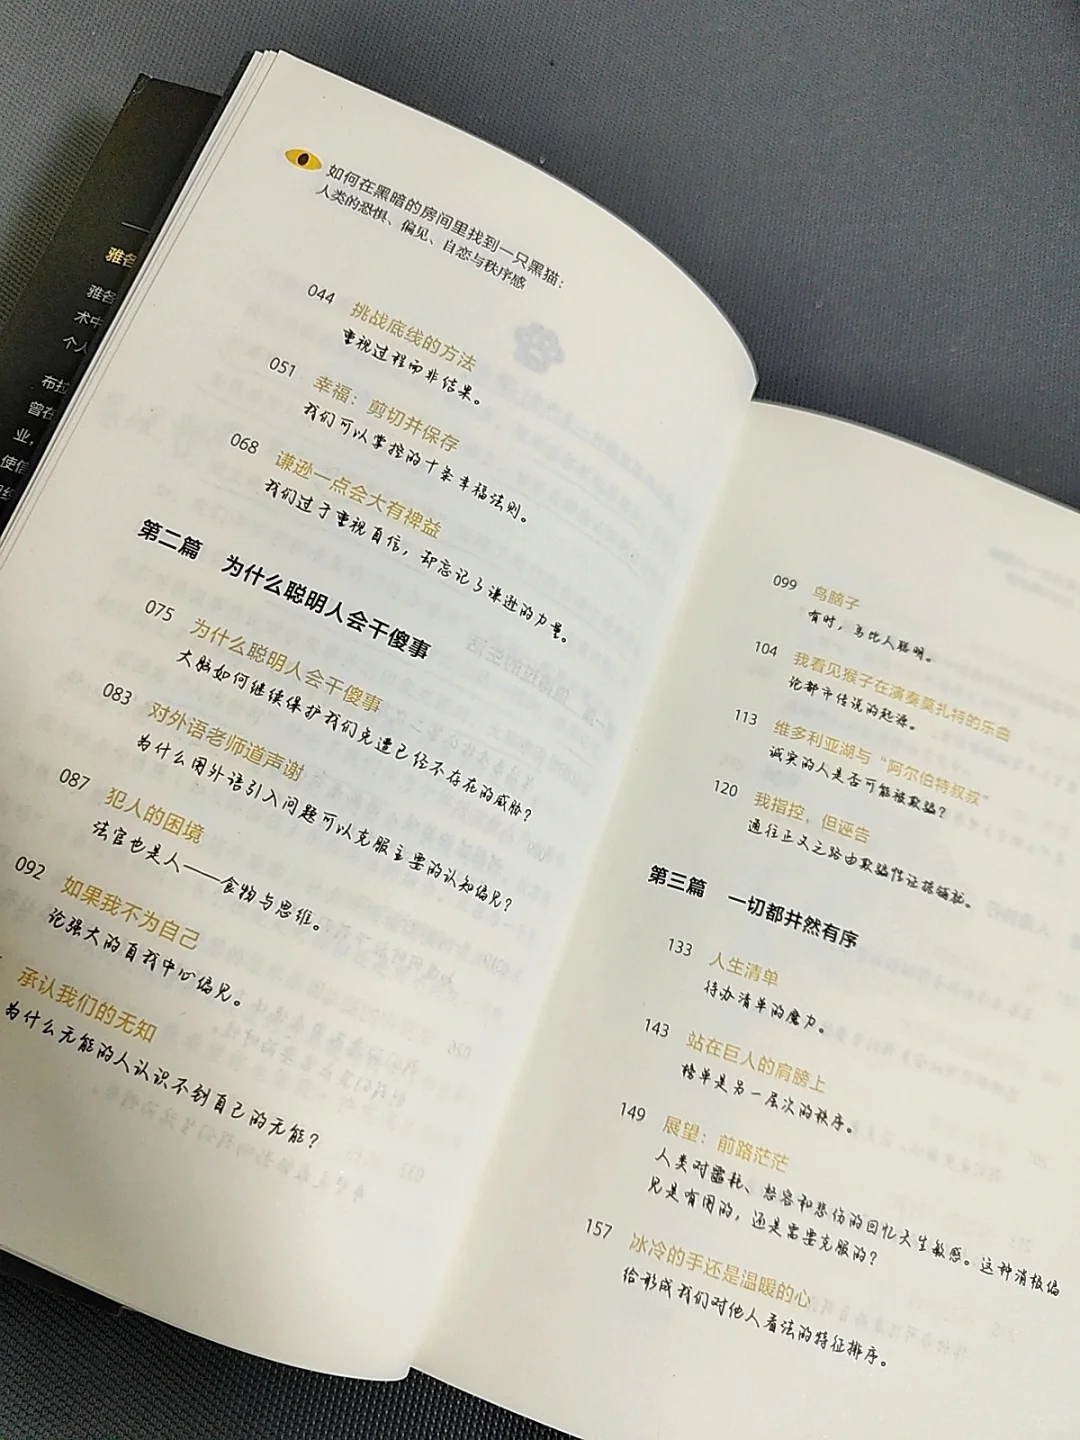 如何在黑暗的房间里找到一只黑猫：
人类的恐惧、偏见、自恋与秩序感
044 挑战底线的方法
重视过程而非结果。
051 幸福：剪切并保存
我们可以掌控的十条幸福法则。
068 谦逊一点会大有裨益
我们过于重视自信，却忘记了谦逊的力量。
第二篇 为什么聪明人会干傻事
075 为什么聪明人会干傻事
大脑如何继续保护我们免遭已经不存在的威胁？
083 对外语老师道声谢
为什么用外语引入问题可以克服主要的认知偏见？
087 犯人的困境
法官也是人——食物与思维。
092 如果我不为自己
论强大的自我中心偏见。
承认我们的无知
为什么无能的人认识不到自己的无能？
099 鸟脑子
有时，鸟比人聪明。
104 我看见猴子在演奏莫扎特的乐曲
论都市传说的起源。
113 维多利亚湖与“阿尔伯特叔叔”
诚实的人是否可能被欺骗？
120 我指控，但诬告
通往正义之路由欺骗性证据铺就。
第三篇 一切都井然有序
133 人生清单
待办清单的魔力。
143 站在巨人的肩膀上
榜单是另一层次的秩序。
149 展望：前路茫茫
人类对噩耗、愁容和悲伤的回忆天生敏感。这种消极偏
见是有用的，还是需要克服的？
157 冰冷的手还是温暖的心
给形成我们对他人看法的特征排序。
雅各
雅各
术中
个人
布拉
曾在
业，
使信